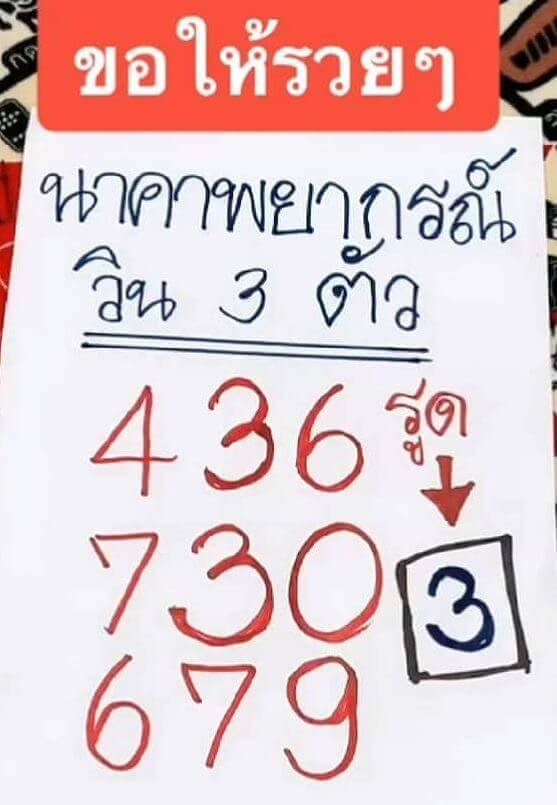 ขอให้รวยๆ
นาคาพยากรณ์
วิน 3 ตัว
436 รูด
730 3
679